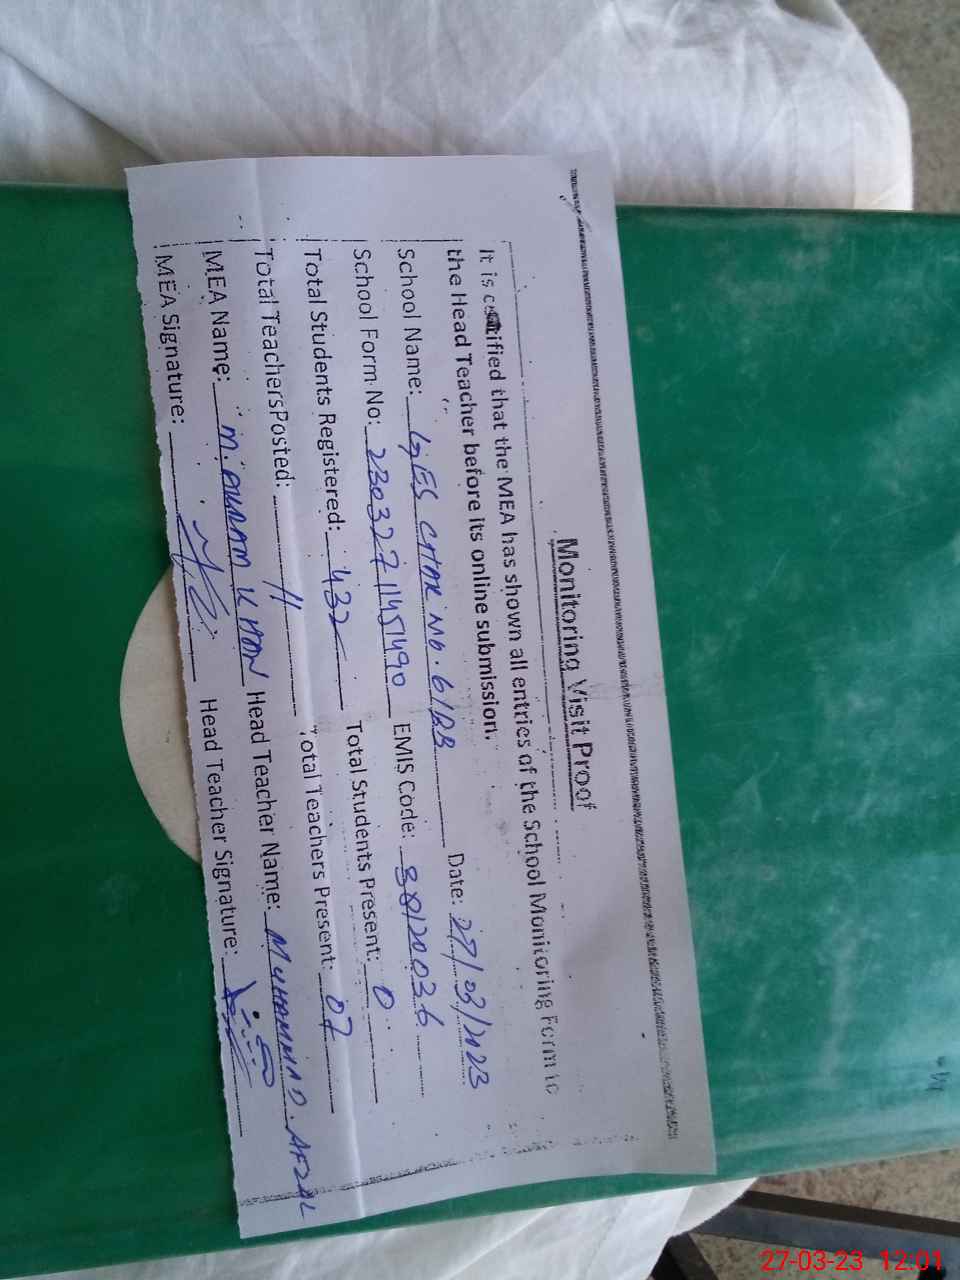 Monitoring Visit Proof
It is certified that the MEA has shown all entries of the School Monitoring Form to
the Head Teacher before its online submission.
School Name: GES CHAK NO. 61RB Date: 27/03/2023
School Form No: 23032711451490 EMIS Code: 38120036
Total Students Registered: 432 Total Students Present: 0
Total TeachersPosted: 11 Total Teachers Present: 07
MEA Name: M. AKRAM KHAN Head Teacher Name: MUHAMMAD. AFZAL
MEA Signature: Head Teacher Signature:
27-03-23 12:01